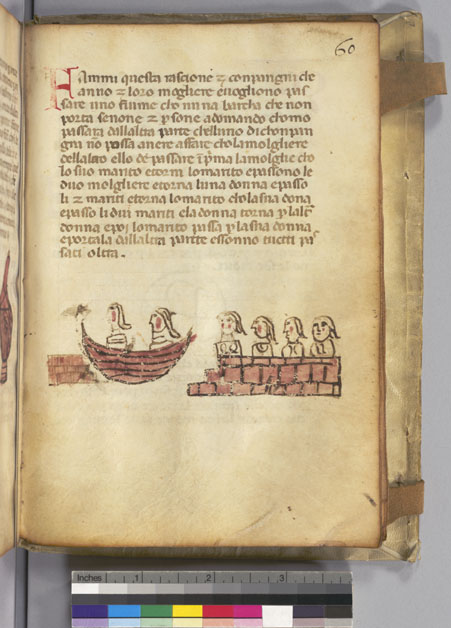 60
Fammi questa rascione 3 conpangni che
anno 3 loro mogliere e uogliono pas
sare uno fiume cho n una barcha che non
porta se none 2 psone adomando chomo
passara dallalta parte che lluno di chonpan
gni nō possa auere affare cho la molgliere
dellaltro ello dē passare ī pma la molglie cho
lo suo marito e torni lo marito epassono le
duo molgliere e torna luna donna epasso
li 2 mariti e torna lo marito cho la sua dona
epasso li dui mariti e la donna torna p laltᵃ
donna epoi lo marito passa p la sua donna
e portala dallalta partte essonno tuctti pa
sati oltra.
Inches 1 2 3